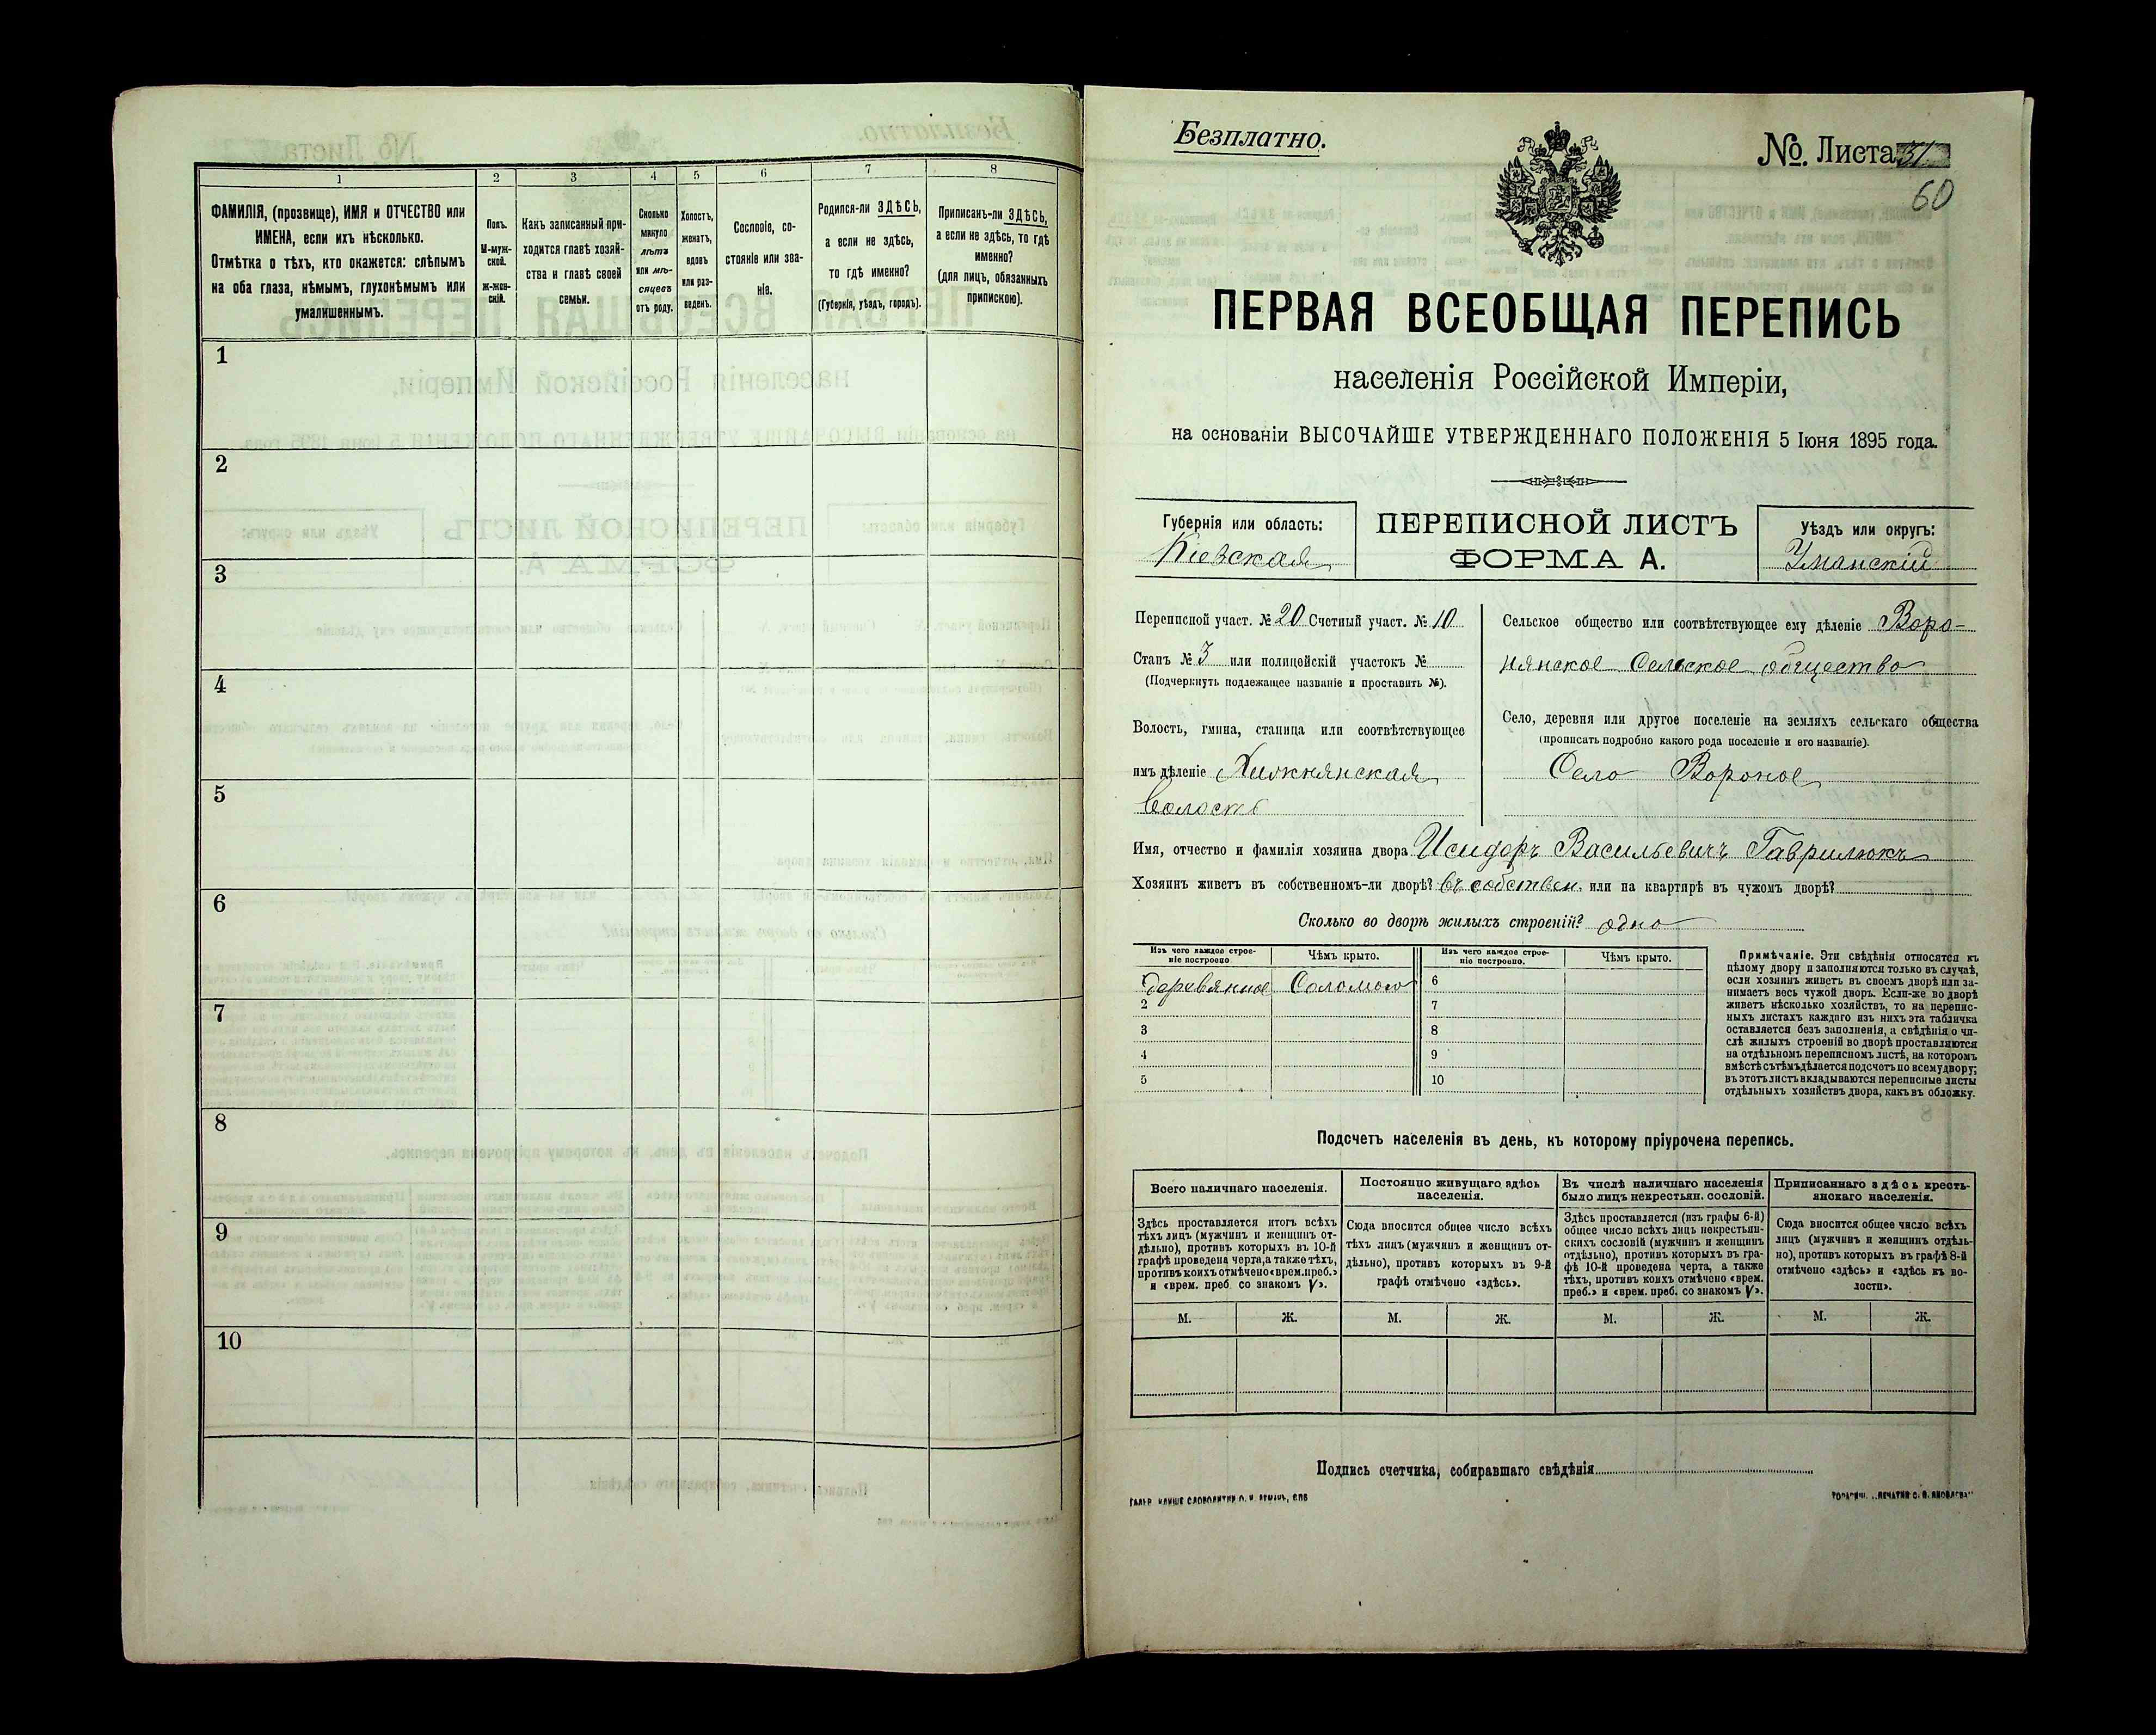 1
2
3
4
5
6
7
8
ФАМИЛІЯ, (прозвище), ИМЯ и ОТЧЕСТВО или
ИМЕНА, если ихъ нѣсколько.
Отмѣтка о тѣхъ, кто окажется: слѣпымъ
на оба глаза, нѣмымъ, глухонѣмымъ или
умалишеннымъ.
Полъ.
М-муж-
ской.
ж-жен-
скій.
Какъ записанный при-
ходится главѣ хозяй-
ства и главѣ своей
семьи.
Сколько
минуло
лѣтъ
или мѣ-
сяцевъ
отъ роду.
Холостъ,
женатъ,
вдовъ
или раз-
веденъ.
Сословіе, со-
стояніе или зва-
ніе.
Родился-ли ЗДѢСЬ,
а если не здѣсь,
то гдѣ именно?
(Губернія, уѣздъ, городъ).
Приписанъ-ли ЗДѢСЬ,
а если не здѣсь, то гдѣ
именно?
(для лицъ, обязанныхъ
припискою).
1
2
3
4
5
6
7
8
9
10
Безплатно.
№. Листа 31
60
ПЕРВАЯ ВСЕОБЩАЯ ПЕРЕПИСЬ
населенія Россійской Имперіи,
на основаніи ВЫСОЧАЙШЕ УТВЕРЖДЕННАГО ПОЛОЖЕНІЯ 5 Іюня 1895 года.
Губернія или область:
Кіевская
ПЕРЕПИСНОЙ ЛИСТЪ
ФОРМА А.
Уѣздъ или округъ:
Уманскій
Переписной участ. № 20 Счетный участ. № 10
Станъ № 3 или полицейскій участокъ №
(Подчеркнуть подлежащее названіе и проставить №).
Волость, гмина, станица или соотвѣтствующее
имъ дѣленіе Хижнянская
волость
Сельское общество или соотвѣтствующее ему дѣленіе Воро-
нянское Сельское общество
Село, деревня или другое поселеніе на земляхъ сельскаго общества
(прописать подробно какого рода поселеніе и его названіе).
Село Вороное
Имя, отчество и фамилія хозяина двора Исидоръ Васильевичъ Гаврилюкъ
Хозяинъ живетъ въ собственномъ-ли дворѣ? въ собствен. или на квартирѣ въ чужомъ дворѣ?
Сколько во дворѣ жилыхъ строеній? одно
Изъ чего каждое строе-
ніе построено
Чѣмъ крыто.
Изъ чего каждое строе-
ніе построено.
Чѣмъ крыто.
деревянное Соломою 6
2 7
3 8
4 9
5 10
Примѣчаніе. Эти свѣдѣнія относятся къ
цѣлому двору и заполняются только въ случаѣ,
если хозяинъ живетъ въ своемъ дворѣ или за-
нимаетъ весь чужой дворъ. Если-же во дворѣ
живетъ нѣсколько хозяйствъ, то на перепис-
ныхъ листахъ каждаго изъ нихъ эта табличка
оставляется безъ заполненія, а свѣдѣнія о чи-
слѣ жилыхъ строеній во дворѣ проставляются
на отдѣльномъ переписномъ листѣ, на которомъ
вмѣстѣ съ тѣмъ дѣлается подсчетъ по всему двору;
въ этотъ листъ вкладываются переписные листы
отдѣльныхъ хозяйствъ двора, какъ въ обложку.
Подсчетъ населенія въ день, къ которому пріурочена перепись.
Всего наличнаго населенія.
Здѣсь проставляется итогъ всѣхъ
тѣхъ лицъ (мужчинъ и женщинъ от-
дѣльно), противъ которыхъ въ 10-й
графѣ проведена черта, а также тѣхъ,
противъ коихъ отмѣчено «врем. преб.»
и «врем. преб со знакомъ V».
Постоянно живущаго здѣсь
населенія.
Сюда вносится общее число всѣхъ
тѣхъ лицъ (мужчинъ и женщинъ от-
дѣльно), противъ которыхъ въ 9-й
графѣ отмѣчено «здѣсь».
Въ числѣ наличнаго населенія
было лицъ некрестьян. сословій.
Здѣсь проставляется (изъ графы 6-й)
общее число всѣхъ лицъ некрестьян-
скихъ сословій (мужчинъ и женщинъ
отдѣльно), противъ которыхъ въ гра-
фѣ 10-й проведена черта, а также
тѣхъ, противъ коихъ отмѣчено «врем.
преб.» и «врем. преб. со знакомъ V».
Приписаннаго здѣсь кресть-
янскаго населенія.
Сюда вносится общее число всѣхъ
лицъ (мужчинъ и женщинъ отдѣль-
но), противъ которыхъ въ графѣ 8-й
отмѣчено «здѣсь» и «здѣсь къ во-
лости».
М. Ж. М. Ж. М. Ж. М. Ж.
Подпись счетчика, собиравшаго свѣдѣнія